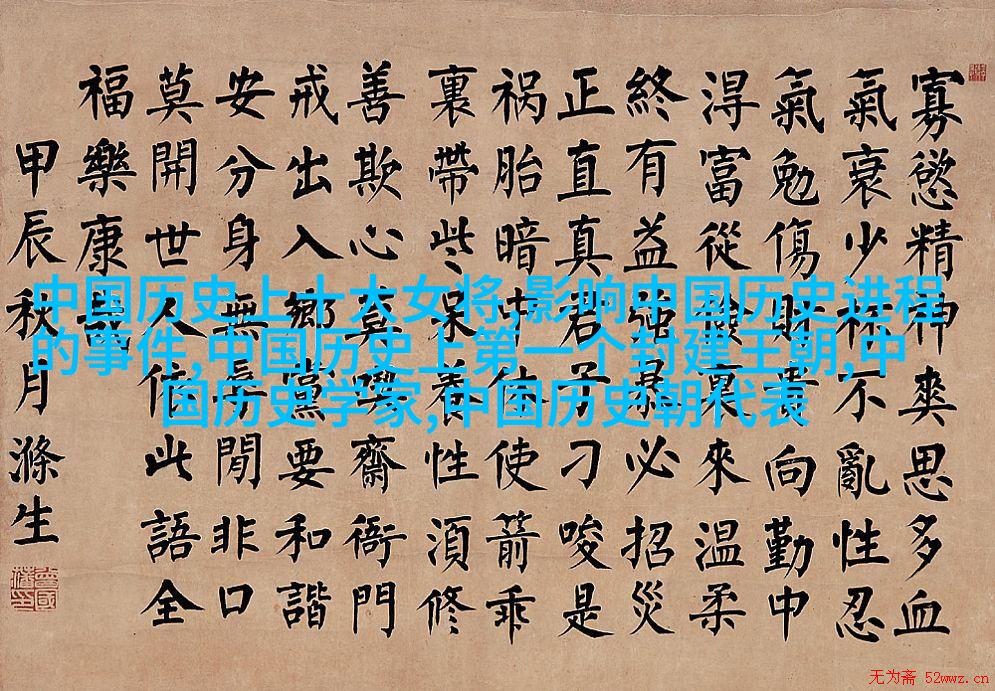 寡慾精神爽思多血
氣衰少杯不亂性忍
氣勉傷財貴向勤中
淂富從儉裏來温柔
終有益强暴必招災
正直真君子刁唆是
祸胎暗中休使箭乖
裏帶些呆養性須修
善欺心莫喫齋衙門
戒出入鄉黨要和諧
安分身無辱閒非口
莫開世人依此語全
福樂康哉
甲辰秋月滌生
中国历史上十大女将,影响中国历史进程
的事件,中国历史上第一个封建王朝,中
国历史学家,中国历史朝代表
无为斋 52wwz.cn